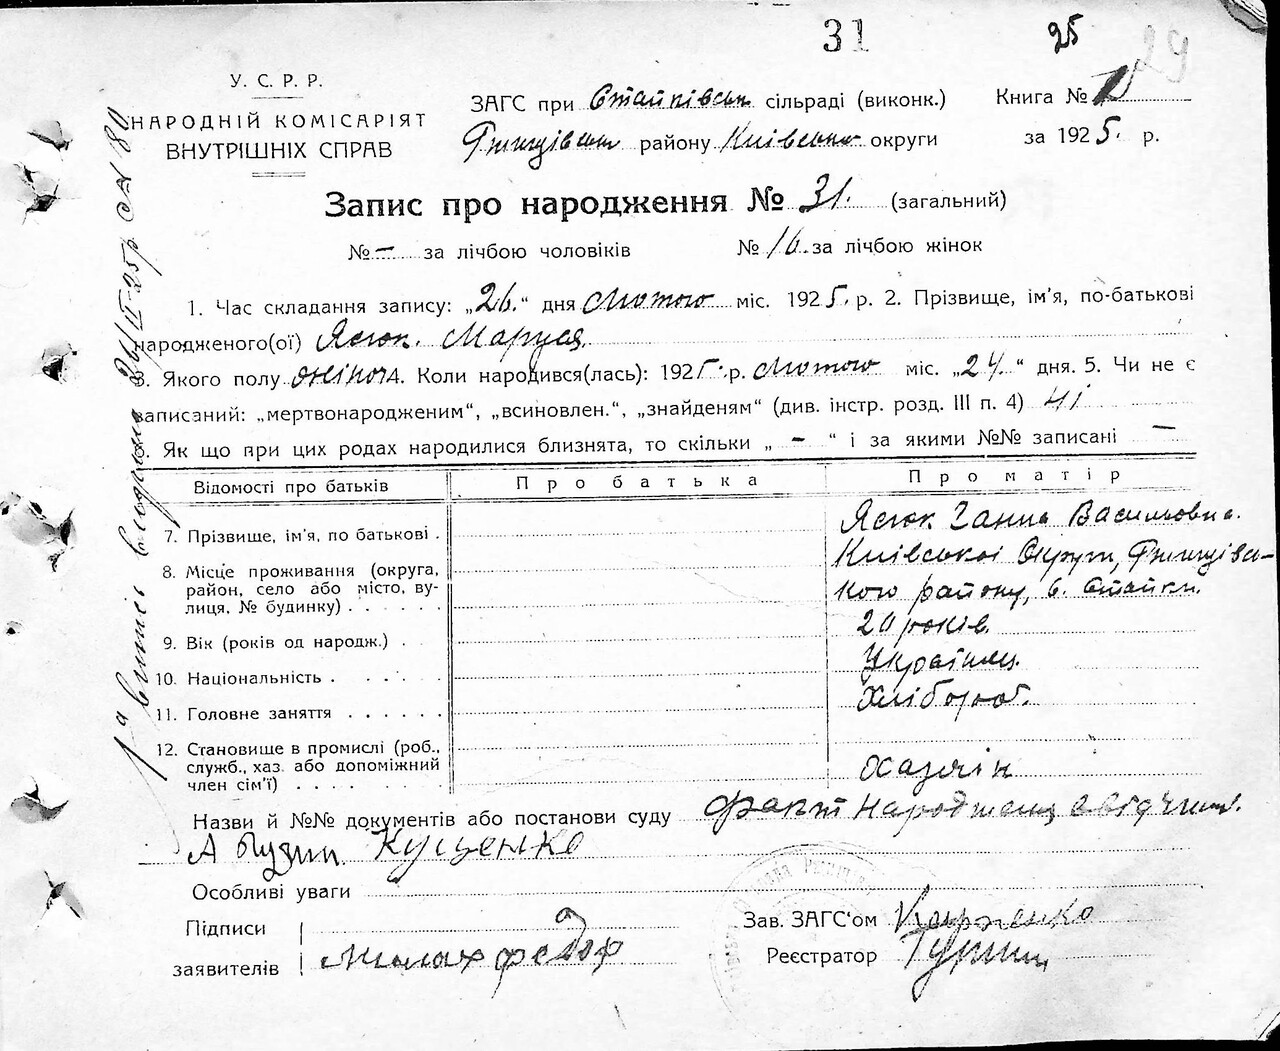 31 25 29
У. С. Р. Р.
НАРОДНІЙ КОМІСАРІЯТ
ВНУТРІШНІХ СПРАВ
ЗАГС при Стайківськ сільраді (виконк.)
району Київської округи
Книга №
за 1925. р.
Запис про народження № 31. (загальний)
№ – за лічбою чоловіків № 16. за лічбою жінок
1. Час складання запису: „26.“ дня Лютого міс. 1925. р. 2. Прізвище, ім’я, по-батькові
народженого(ої) Ясюк. Маруся.
3. Якого полу жіноча. Коли народився(лась): 1925 р. Лютого міс. „24.“ дня. 5. Чи не є
записаний: „мертвонародженим“, „всиновлен.“, „знайденям“ (див. інстр. розд. III п. 4)
6. Як що при цих родах народилися близнята, то скільки „ – “ і за якими №№ записані –
Відомості про батьків Про батька Про матір
7. Прізвище, ім’я, по батькові . Ясюк Ганна Василівна.
8. Місце проживання (округа, район, село або місто, вулиця, № будинку) . . . . . Київської Округи,
кого району, с. Стайки.
9. Вік (років од народж.) . 20 років.
10. Національність . . . . . Українец.
11. Головне заняття . . . . . . Хлібороб.
12. Становище в промислі (роб., служб., хаз. або допоміжний член сім’ї) . . . . . . . Хазяїн
Назви й №№ документів або постанови суду факт народження
Кущенко
Особливі уваги
Підписи
заявителів Федор
Зав. ЗАГС‘ом
Реєстратор